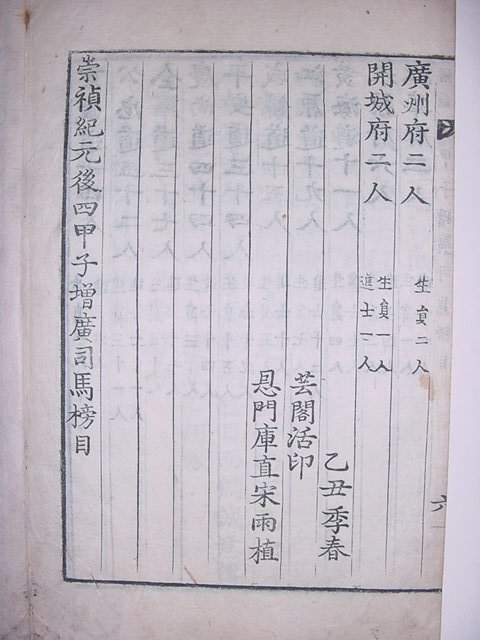 廣州府二人 生員二人
開城府二人 生員一人 進士一人
乙丑季春
芸閣活印
忌門庫直宋雨植
崇禎紀元後四甲子增廣司馬榜目
六